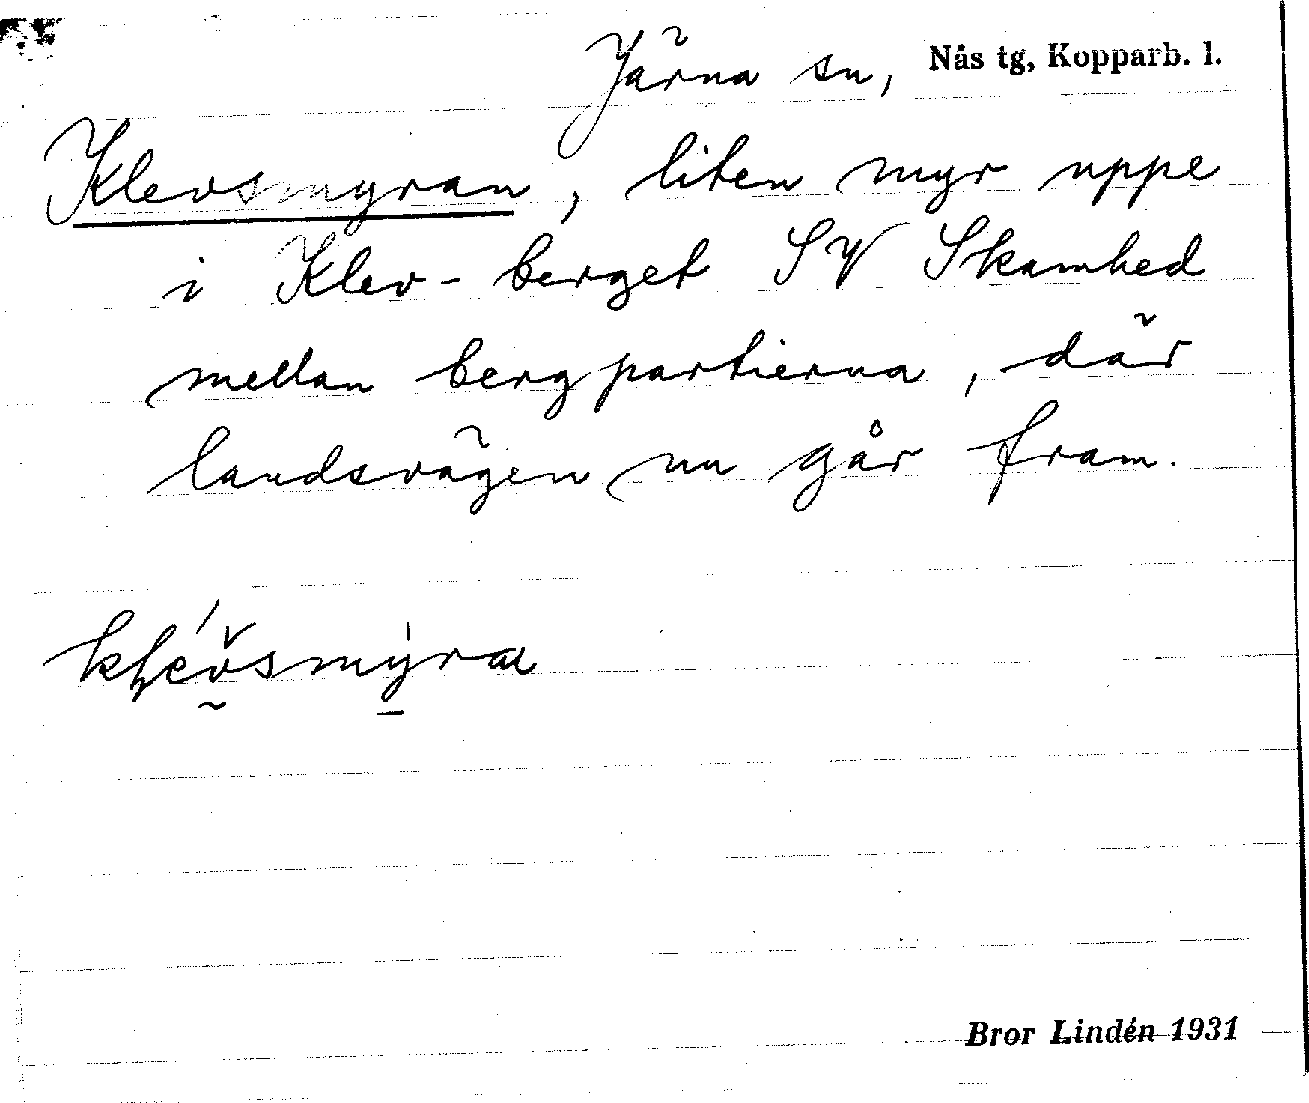 Järna sn, Nås tg, Kopparb. l.
Klevsmyran, liten myr uppe
i Klev-berget SV Skamhed
mellan bergpartierna, där
landsvägen nu går fram.
Bror Lindén 1931